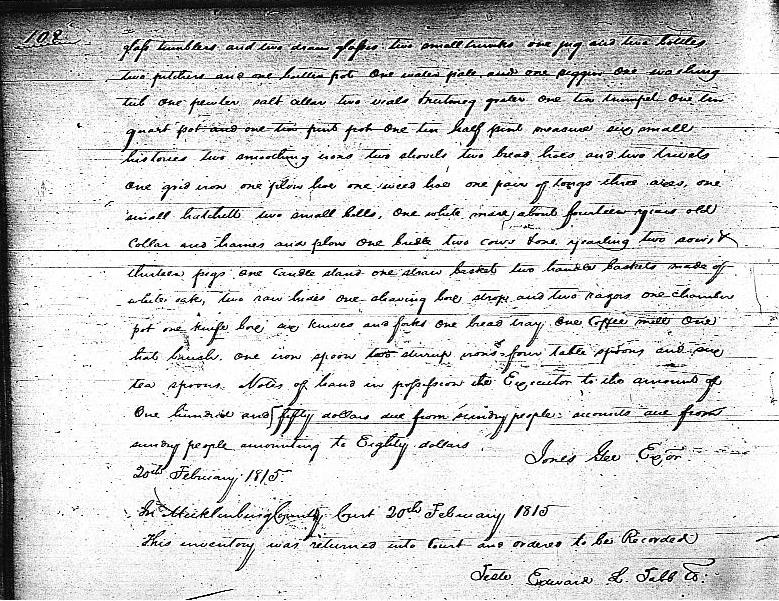 108
glass tumblers and two dram glasses two small trunks one jug and two bottles
two pitchers and one butter pot One water pale and one piggin One washing
tub One pewter salt cellar two nutmeg grater one tin trumpet One tin
quart pot and one tin pint pot One tin half pint measure six small
histories two smoothing irons two shovels two broad hoes and two trivets
One grid iron one plow hoe one weed hoe one pair of tongs three axes, one
small hatchett two small bells, One white mare, about fourteen years old
Collar and hames and plow One bridle two cows & one yearling two sows &
thirteen pigs One Candle stand one straw basket two handle baskets made of
white oak, two raw hides one shaving box strop and two razors one chamber
pot one knife box six knives and forks One bread tray. One Coffee mill One
hat brush. One iron spoon two stirrup irons four table spoons and six
tea spoons. Notes of hand in possession the Executor to the amount of
One hundred and fifty dollars due from sundry people: accounts due from
sundry people amounting to Eighty dollars
Jones Gee Exor
20th February 1815
In Mecklenburg County Court 20th February 1815
This inventory was returned into Court and ordered to be Recorded
Teste Edward L. Tabb